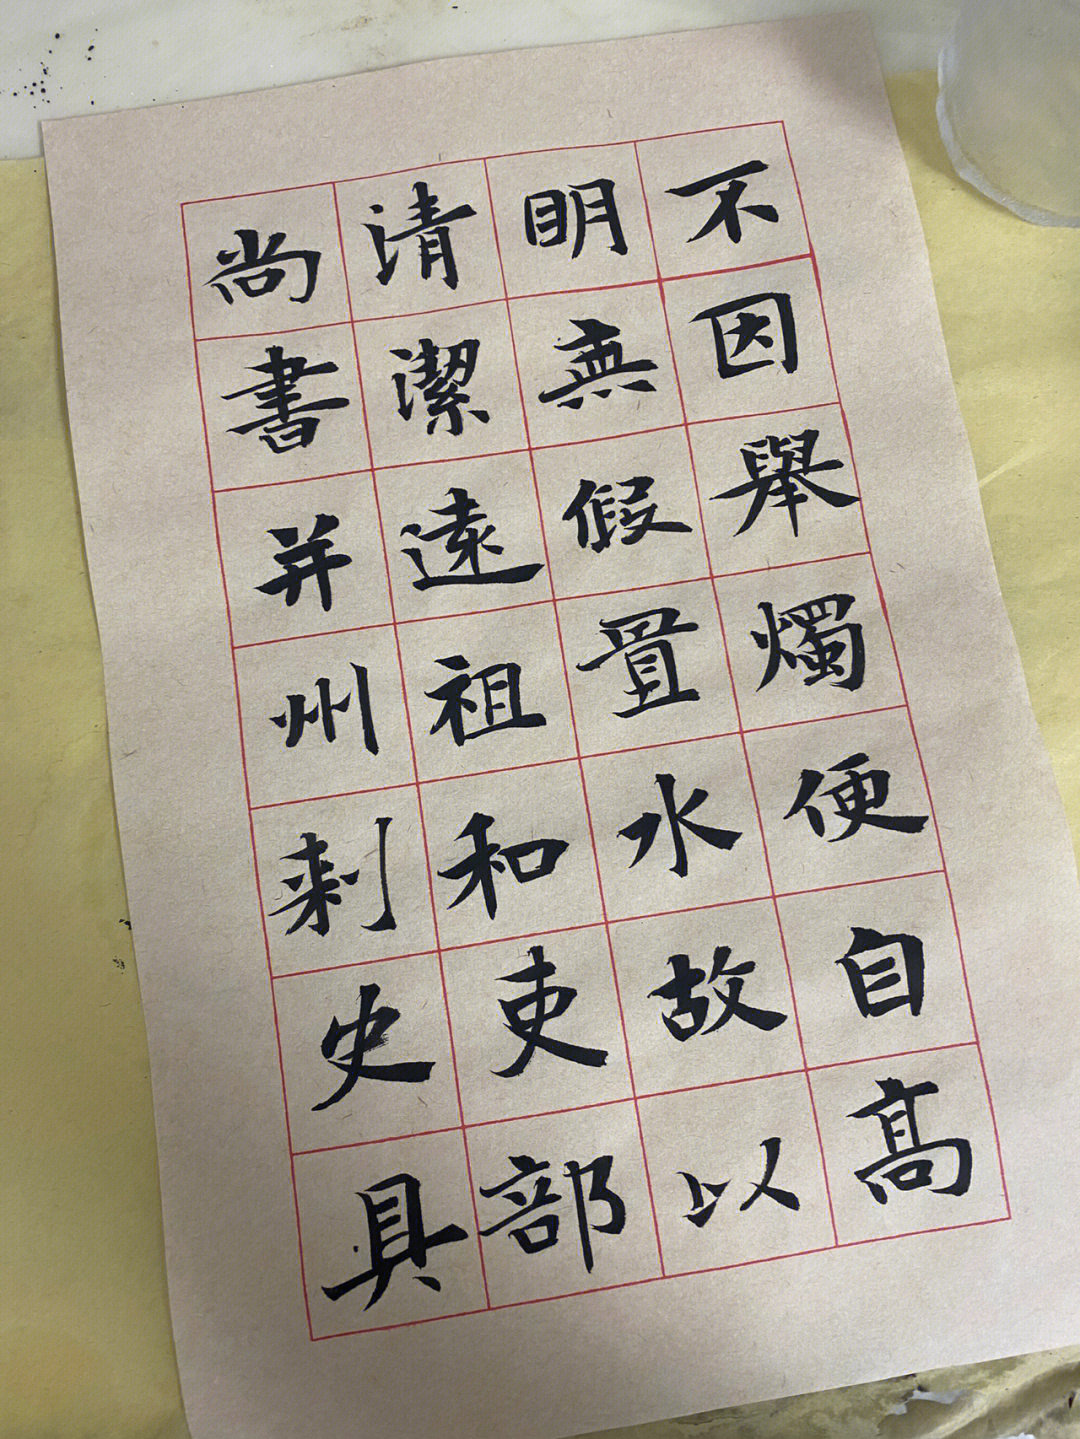 不因舉燭便自高
明無假置水故以
清潔遠祖和吏部
尚書并州刺史具